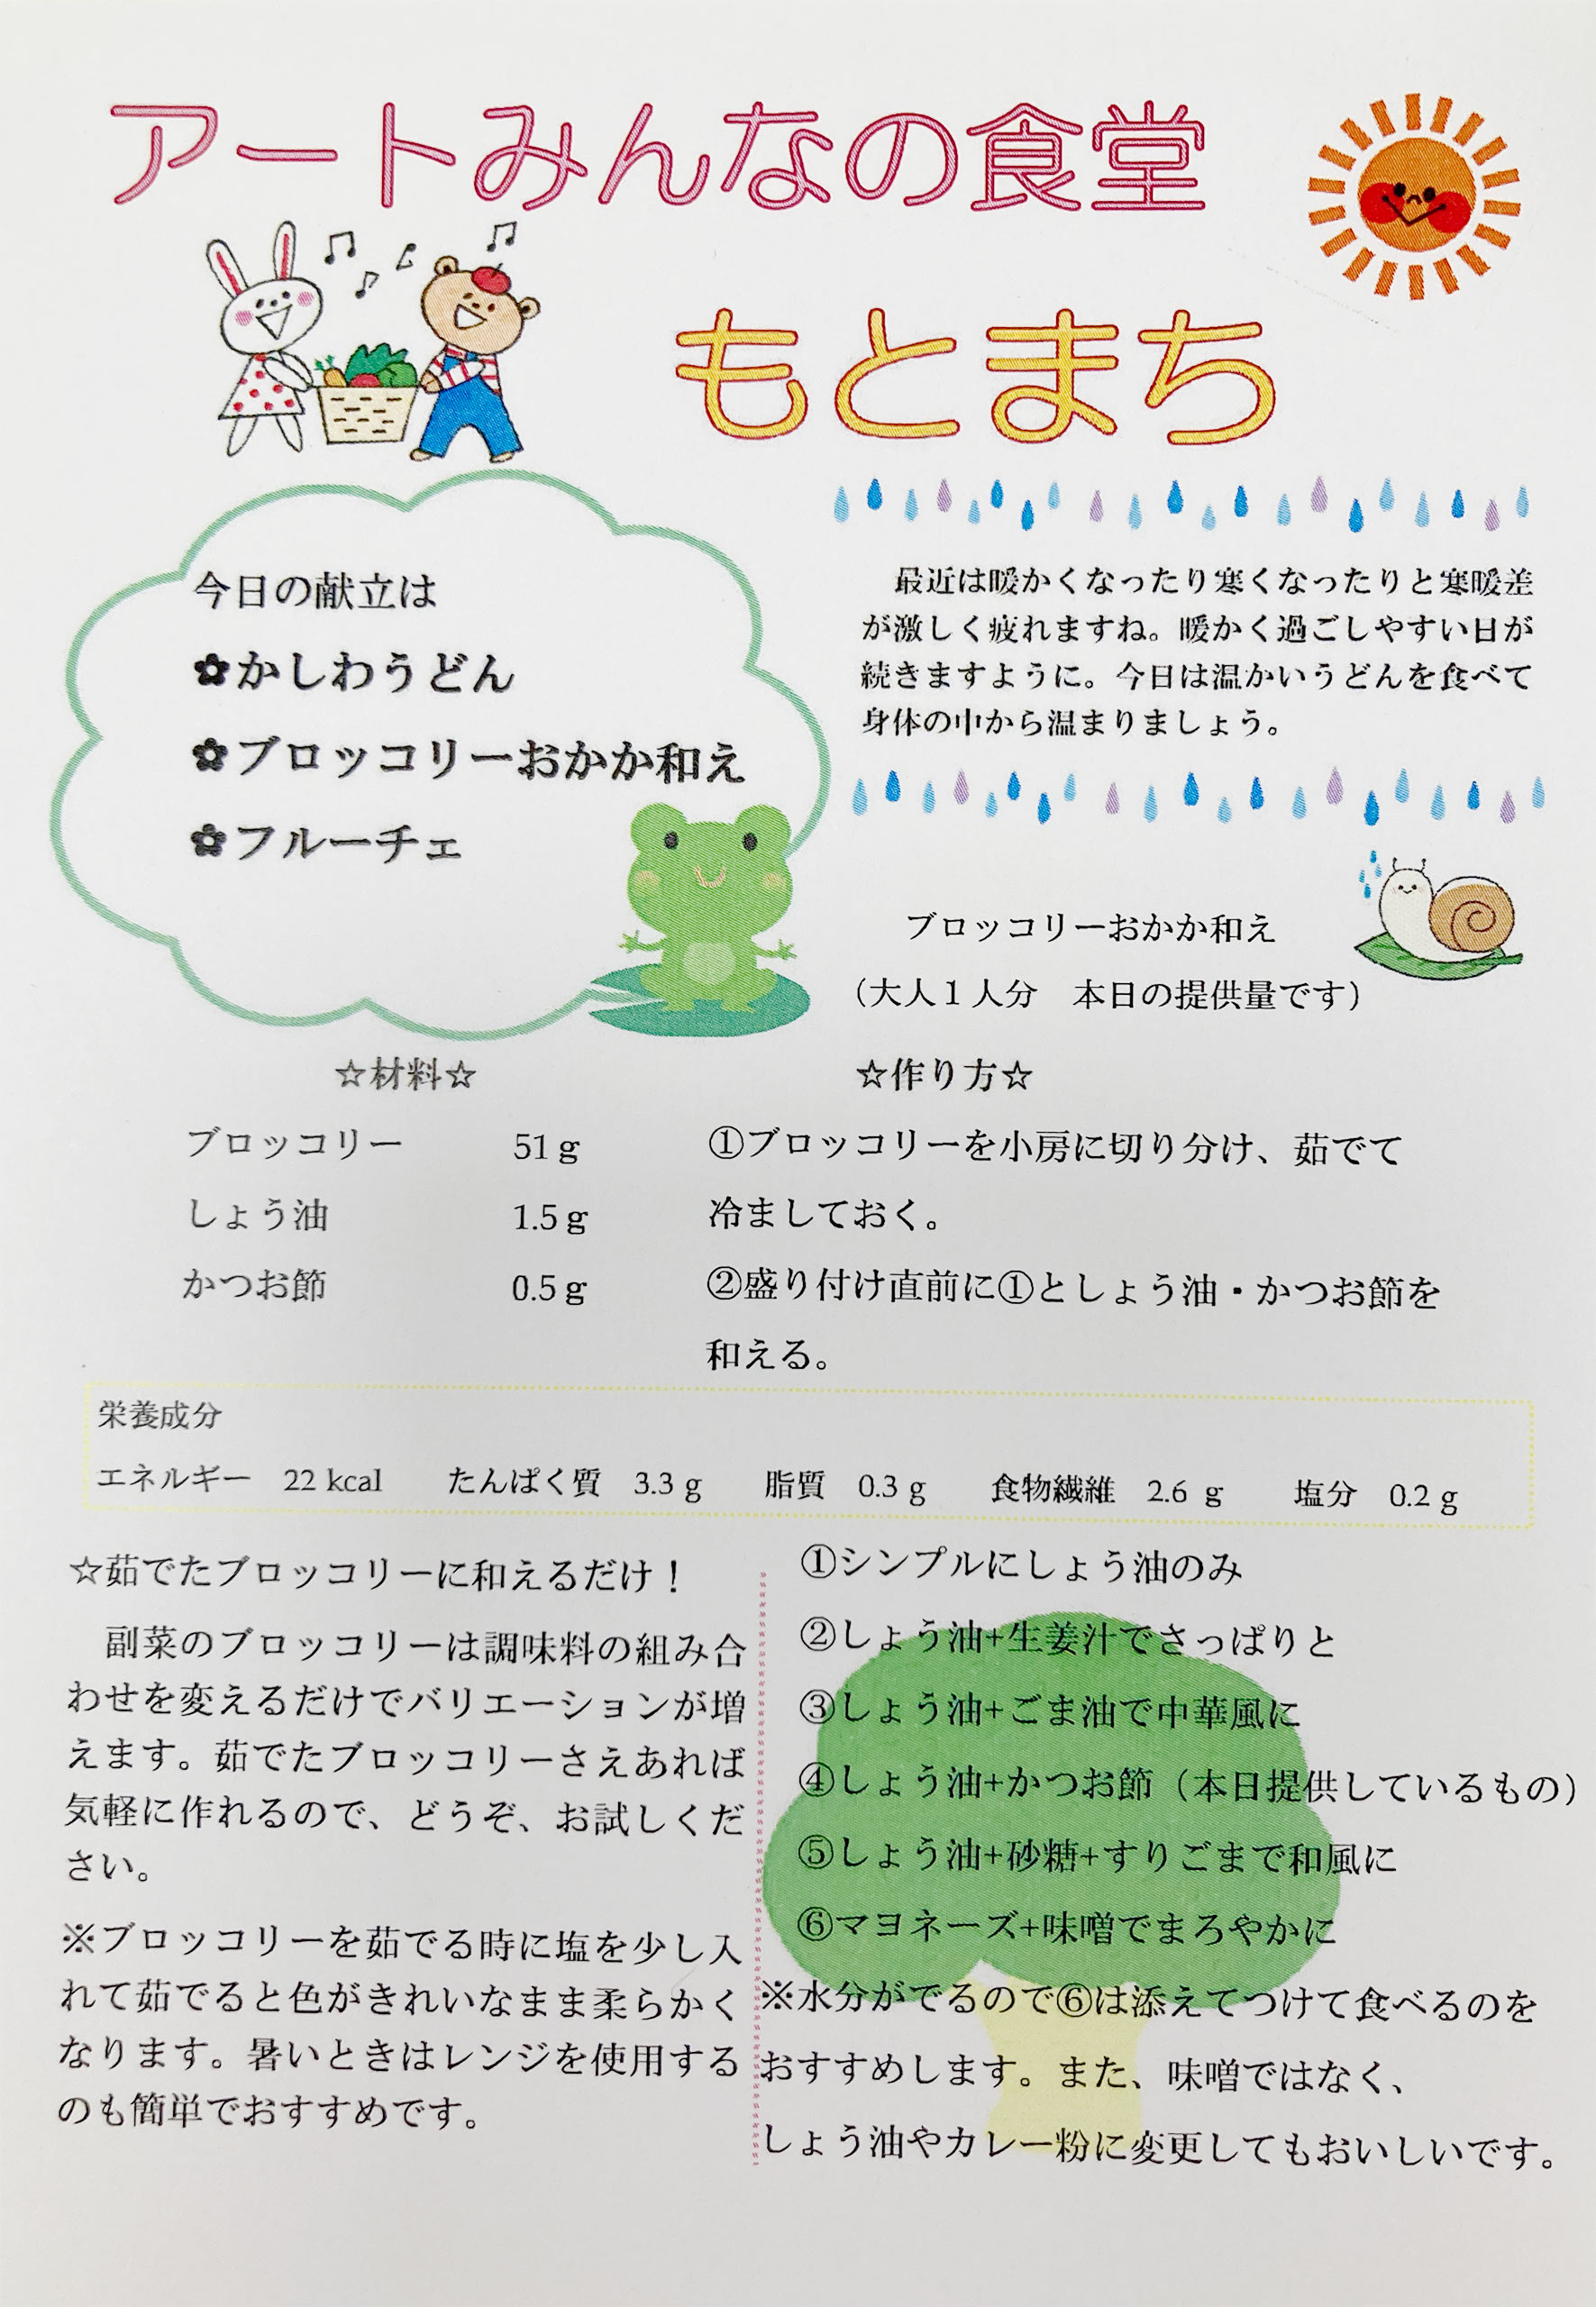 アートみんなの食堂
もとまち
今日の献立は
✿かしわうどん
✿ブロッコリーおかか和え
✿フルーチェ
最近は暖かくなったり寒くなったりと寒暖差
が激しく疲れますね。暖かく過ごしやすい日が
続きますように。今日は温かいうどんを食べて
身体の中から温まりましょう。
ブロッコリーおかか和え
（大人１人分　本日の提供量です）
☆材料☆
ブロッコリー　51 g
しょう油　1.5 g
かつお節　0.5 g
☆作り方☆
①ブロッコリーを小房に切り分け、茹でて
冷ましておく。
②盛り付け直前に①としょう油・かつお節を
和える。
栄養成分
エネルギー　22 kcal　たんぱく質　3.3 g　脂質　0.3 g　食物繊維　2.6 g　塩分　0.2 g
☆茹でたブロッコリーに和えるだけ！
副菜のブロッコリーは調味料の組み合
わせを変えるだけでバリエーションが増
えます。茹でたブロッコリーさえあれば
気軽に作れるので、どうぞ、お試しくだ
さい。
※ブロッコリーを茹でる時に塩を少し入
れて茹でると色がきれいなまま柔らかく
なります。暑いときはレンジを使用する
のも簡単でおすすめです。
①シンプルにしょう油のみ
②しょう油+生姜汁でさっぱりと
③しょう油+ごま油で中華風に
④しょう油+かつお節（本日提供しているもの）
⑤しょう油+砂糖+すりごまで和風に
⑥マヨネーズ+味噌でまろやかに
※水分がでるので⑥は添えてつけて食べるのを
おすすめします。また、味噌ではなく、
しょう油やカレー粉に変更してもおいしいです。